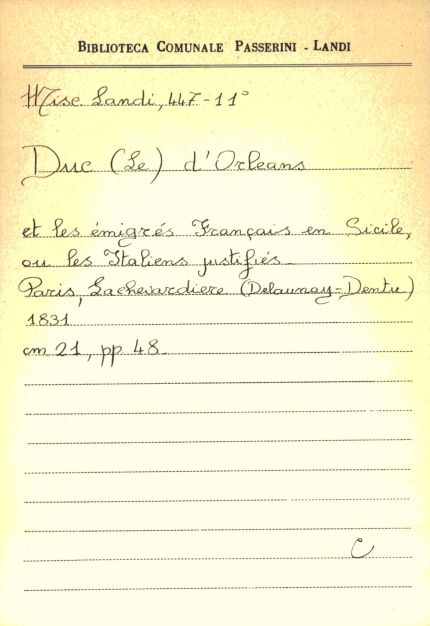 BIBLIOTECA COMUNALE PASSERINI - LANDI
Misc. Landi, 447-11°
Duc (Le) d'Orleans
et les émigrés Français en Sicile,
ou les Italiens justifiés_
Paris, Lachevardiere (Delaunay=Dentu)
1831
cm 21, pp 48_
C